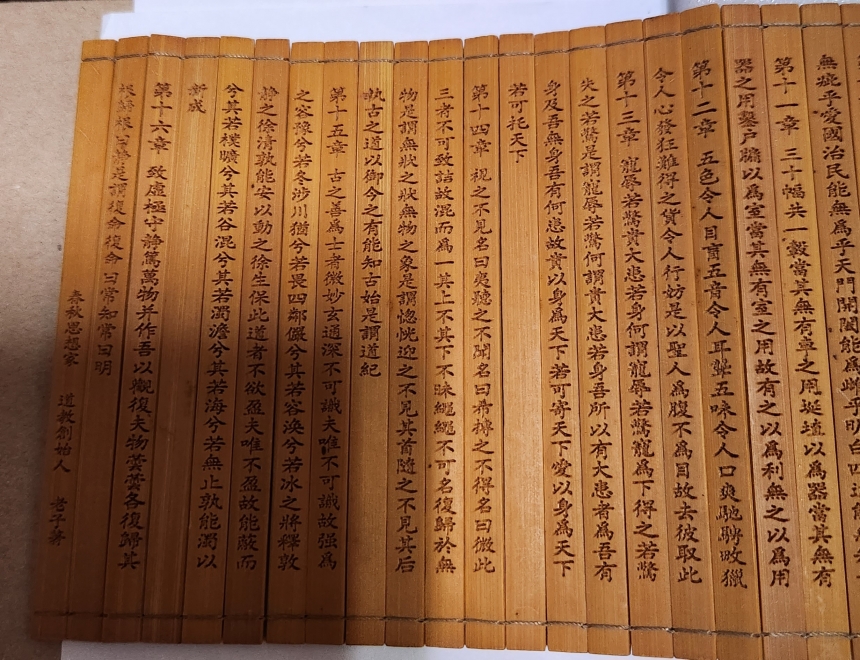 無疵乎愛國治民能無爲乎天門開闔能爲雌乎明白四達能無
第十一章 三十幅共一毂當其無有車之用埏埴以爲器當其無有
器之用鑿户牖以爲室當其無有室之用故有之以爲利無之以爲用
第十二章 五色令人目盲五音令人耳聾五味令人口爽馳騁畋獵
令人心發狂難得之貨令人行妨是以聖人爲腹不爲目故去彼取此
第十三章 寵辱若驚貴大患若身何謂寵辱若驚寵爲下得之若驚
失之若驚是謂寵辱若驚何謂貴大患若身吾所以有大患者爲吾有
身及吾無身吾有何患故貴以身爲天下若可寄天下愛以身爲天下
若可托天下
第十四章 視之不見名曰夷聽之不聞名曰希摶之不得名曰微此
三者不可致詰故混而爲一其上不其下不昧繩繩不可名復歸於無
物是謂無狀之狀無物之象是謂惚恍迎之不見其首隨之不見其后
執古之道以御今之有能知古始是謂道紀
第十五章 古之善爲士者微妙玄通深不可識夫唯不可識故强爲
之容豫兮若冬涉川猶兮若畏四鄰儼兮其若容涣兮若冰之將釋敦
兮其若樸曠兮其若谷混兮其若濁澹兮其若海兮若無止孰能濁以
静之徐清孰能安以動之徐生保此道者不欲盈夫唯不盈故能蔽而
新成
第十六章 致虛極守静篤萬物并作吾以觀復夫物蕓蕓各復歸其
根歸根曰静是謂復命復命曰常知常曰明
春秋思想家 道教創始人 老子著